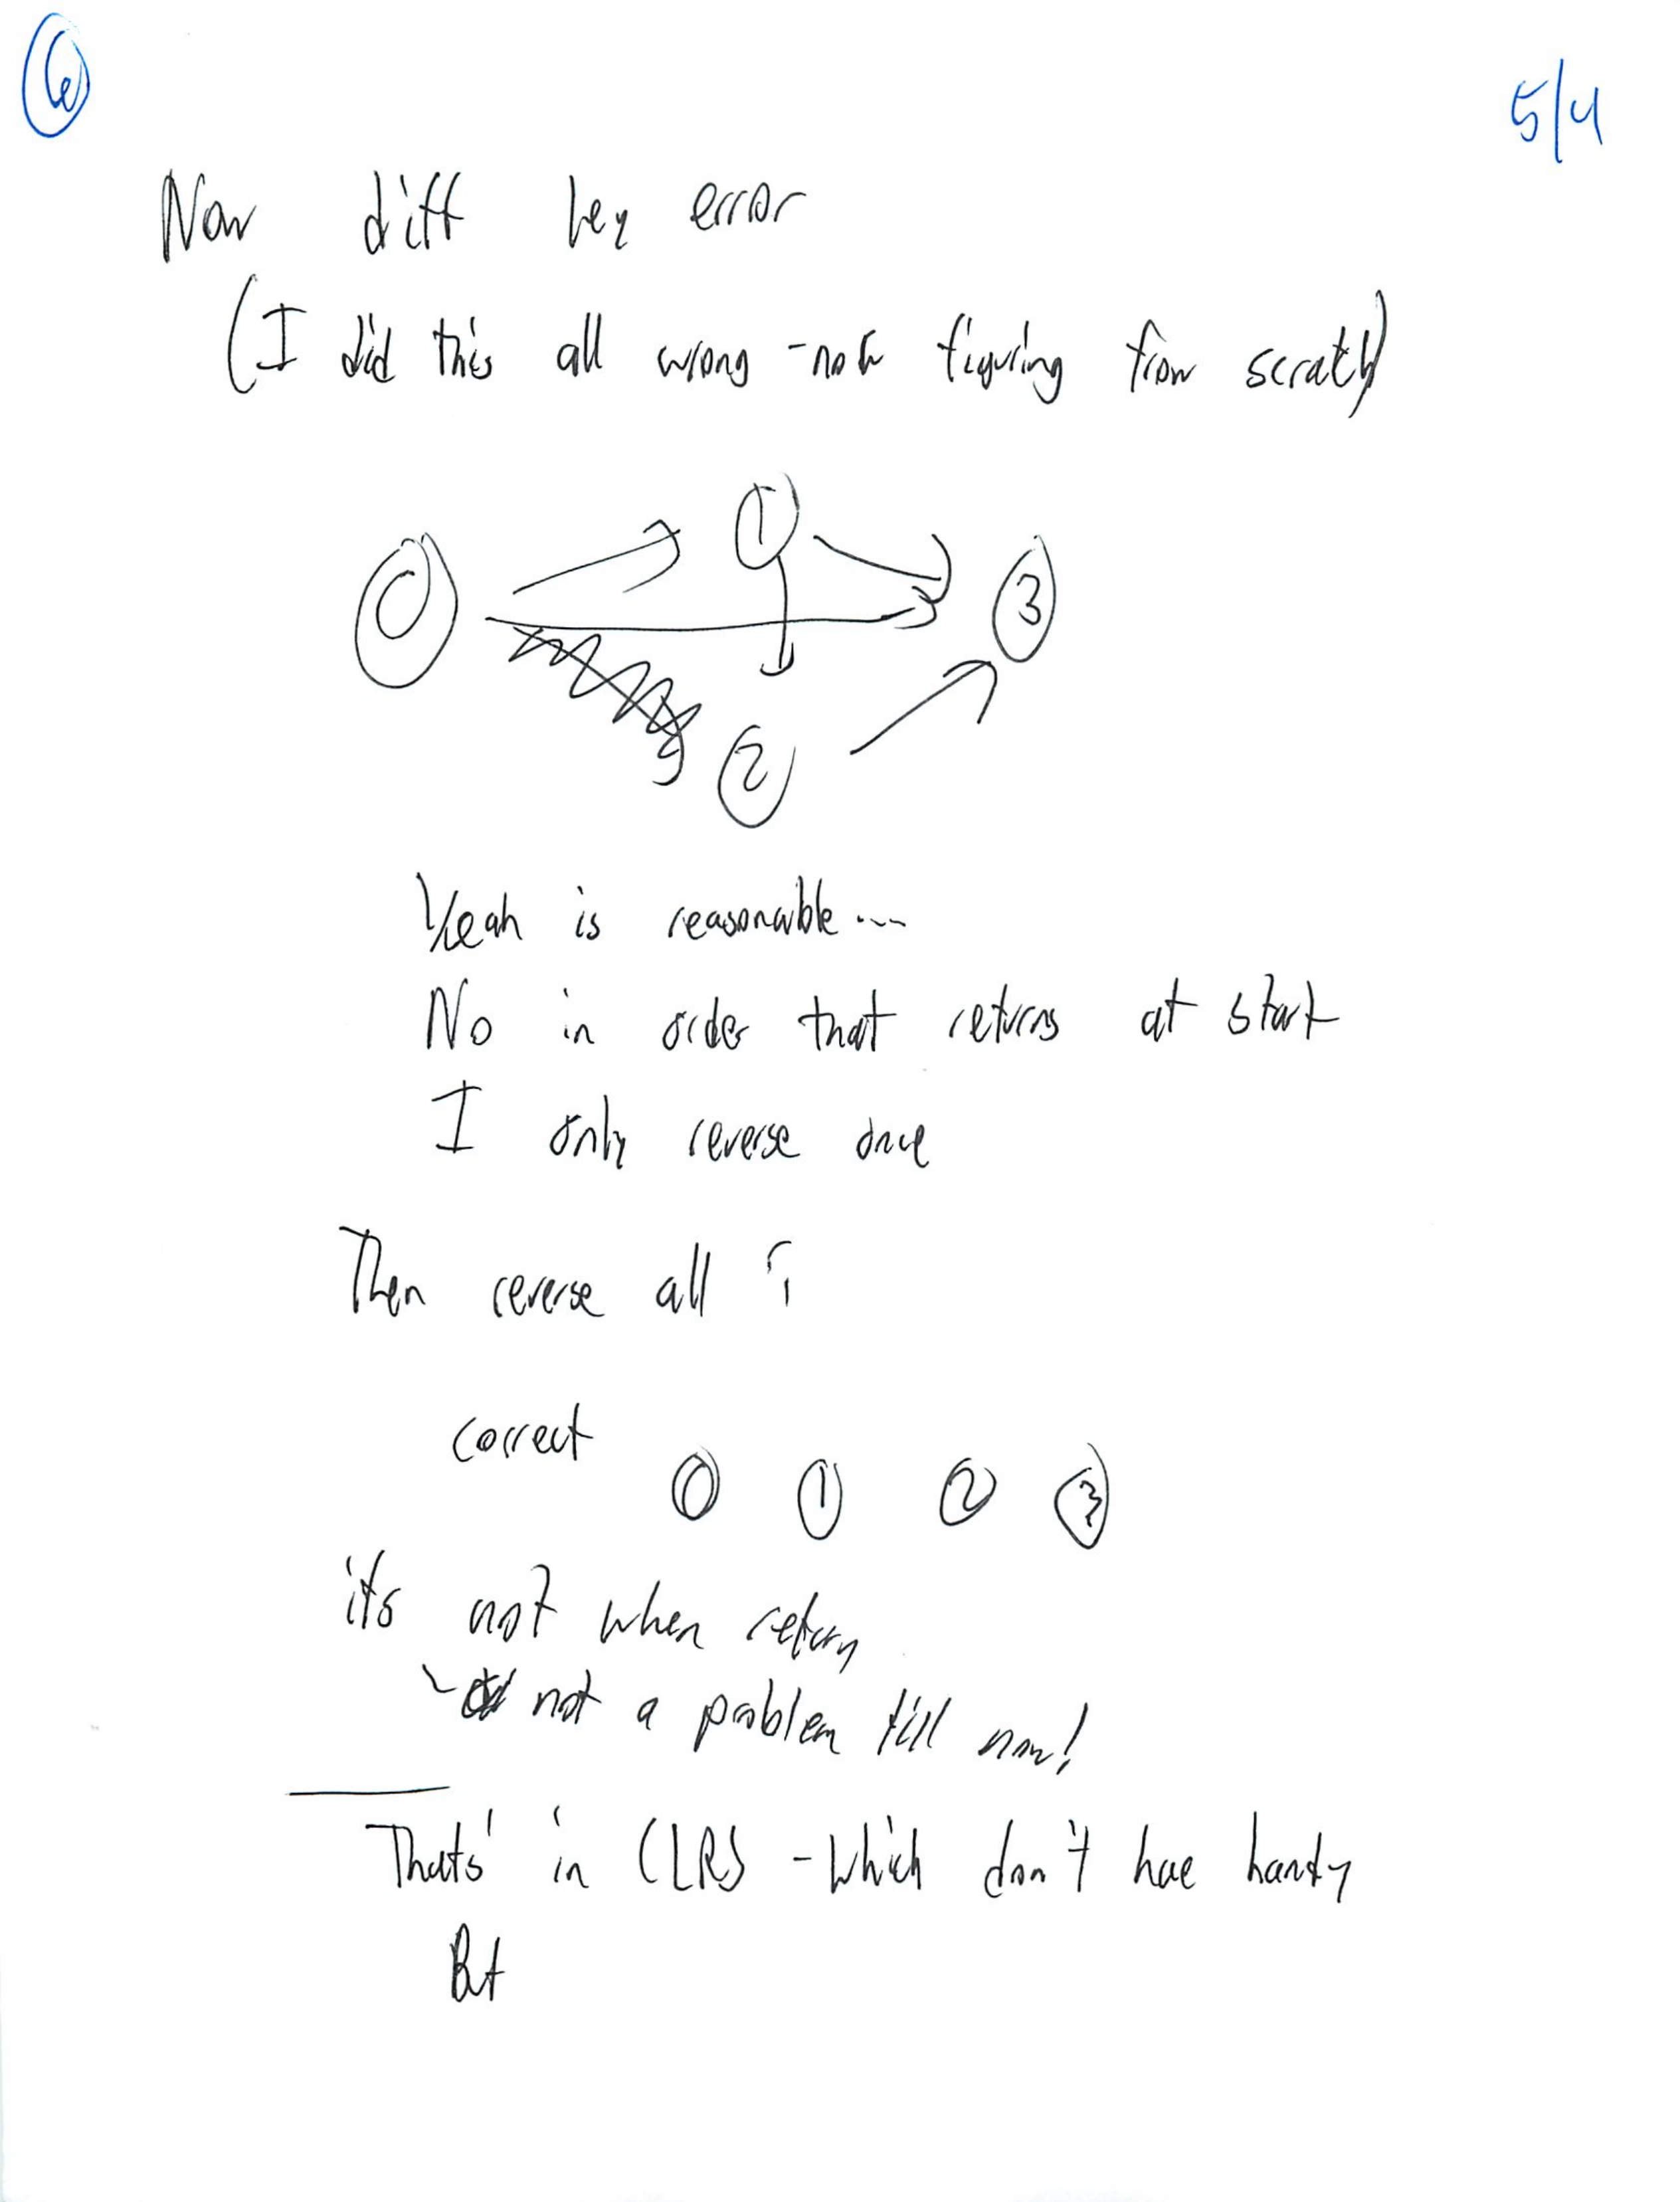 6
5/4
Now diff key error
(I did this all wrong - now figuring from scratch)
0
1
3
2
Yeah is reasonable...
No in order that returns at start
I only reverse once
Then reverse all
correct 0 1 2 3
its not when return
not a problem till now!
That's in CLRS - which don't have handy
But